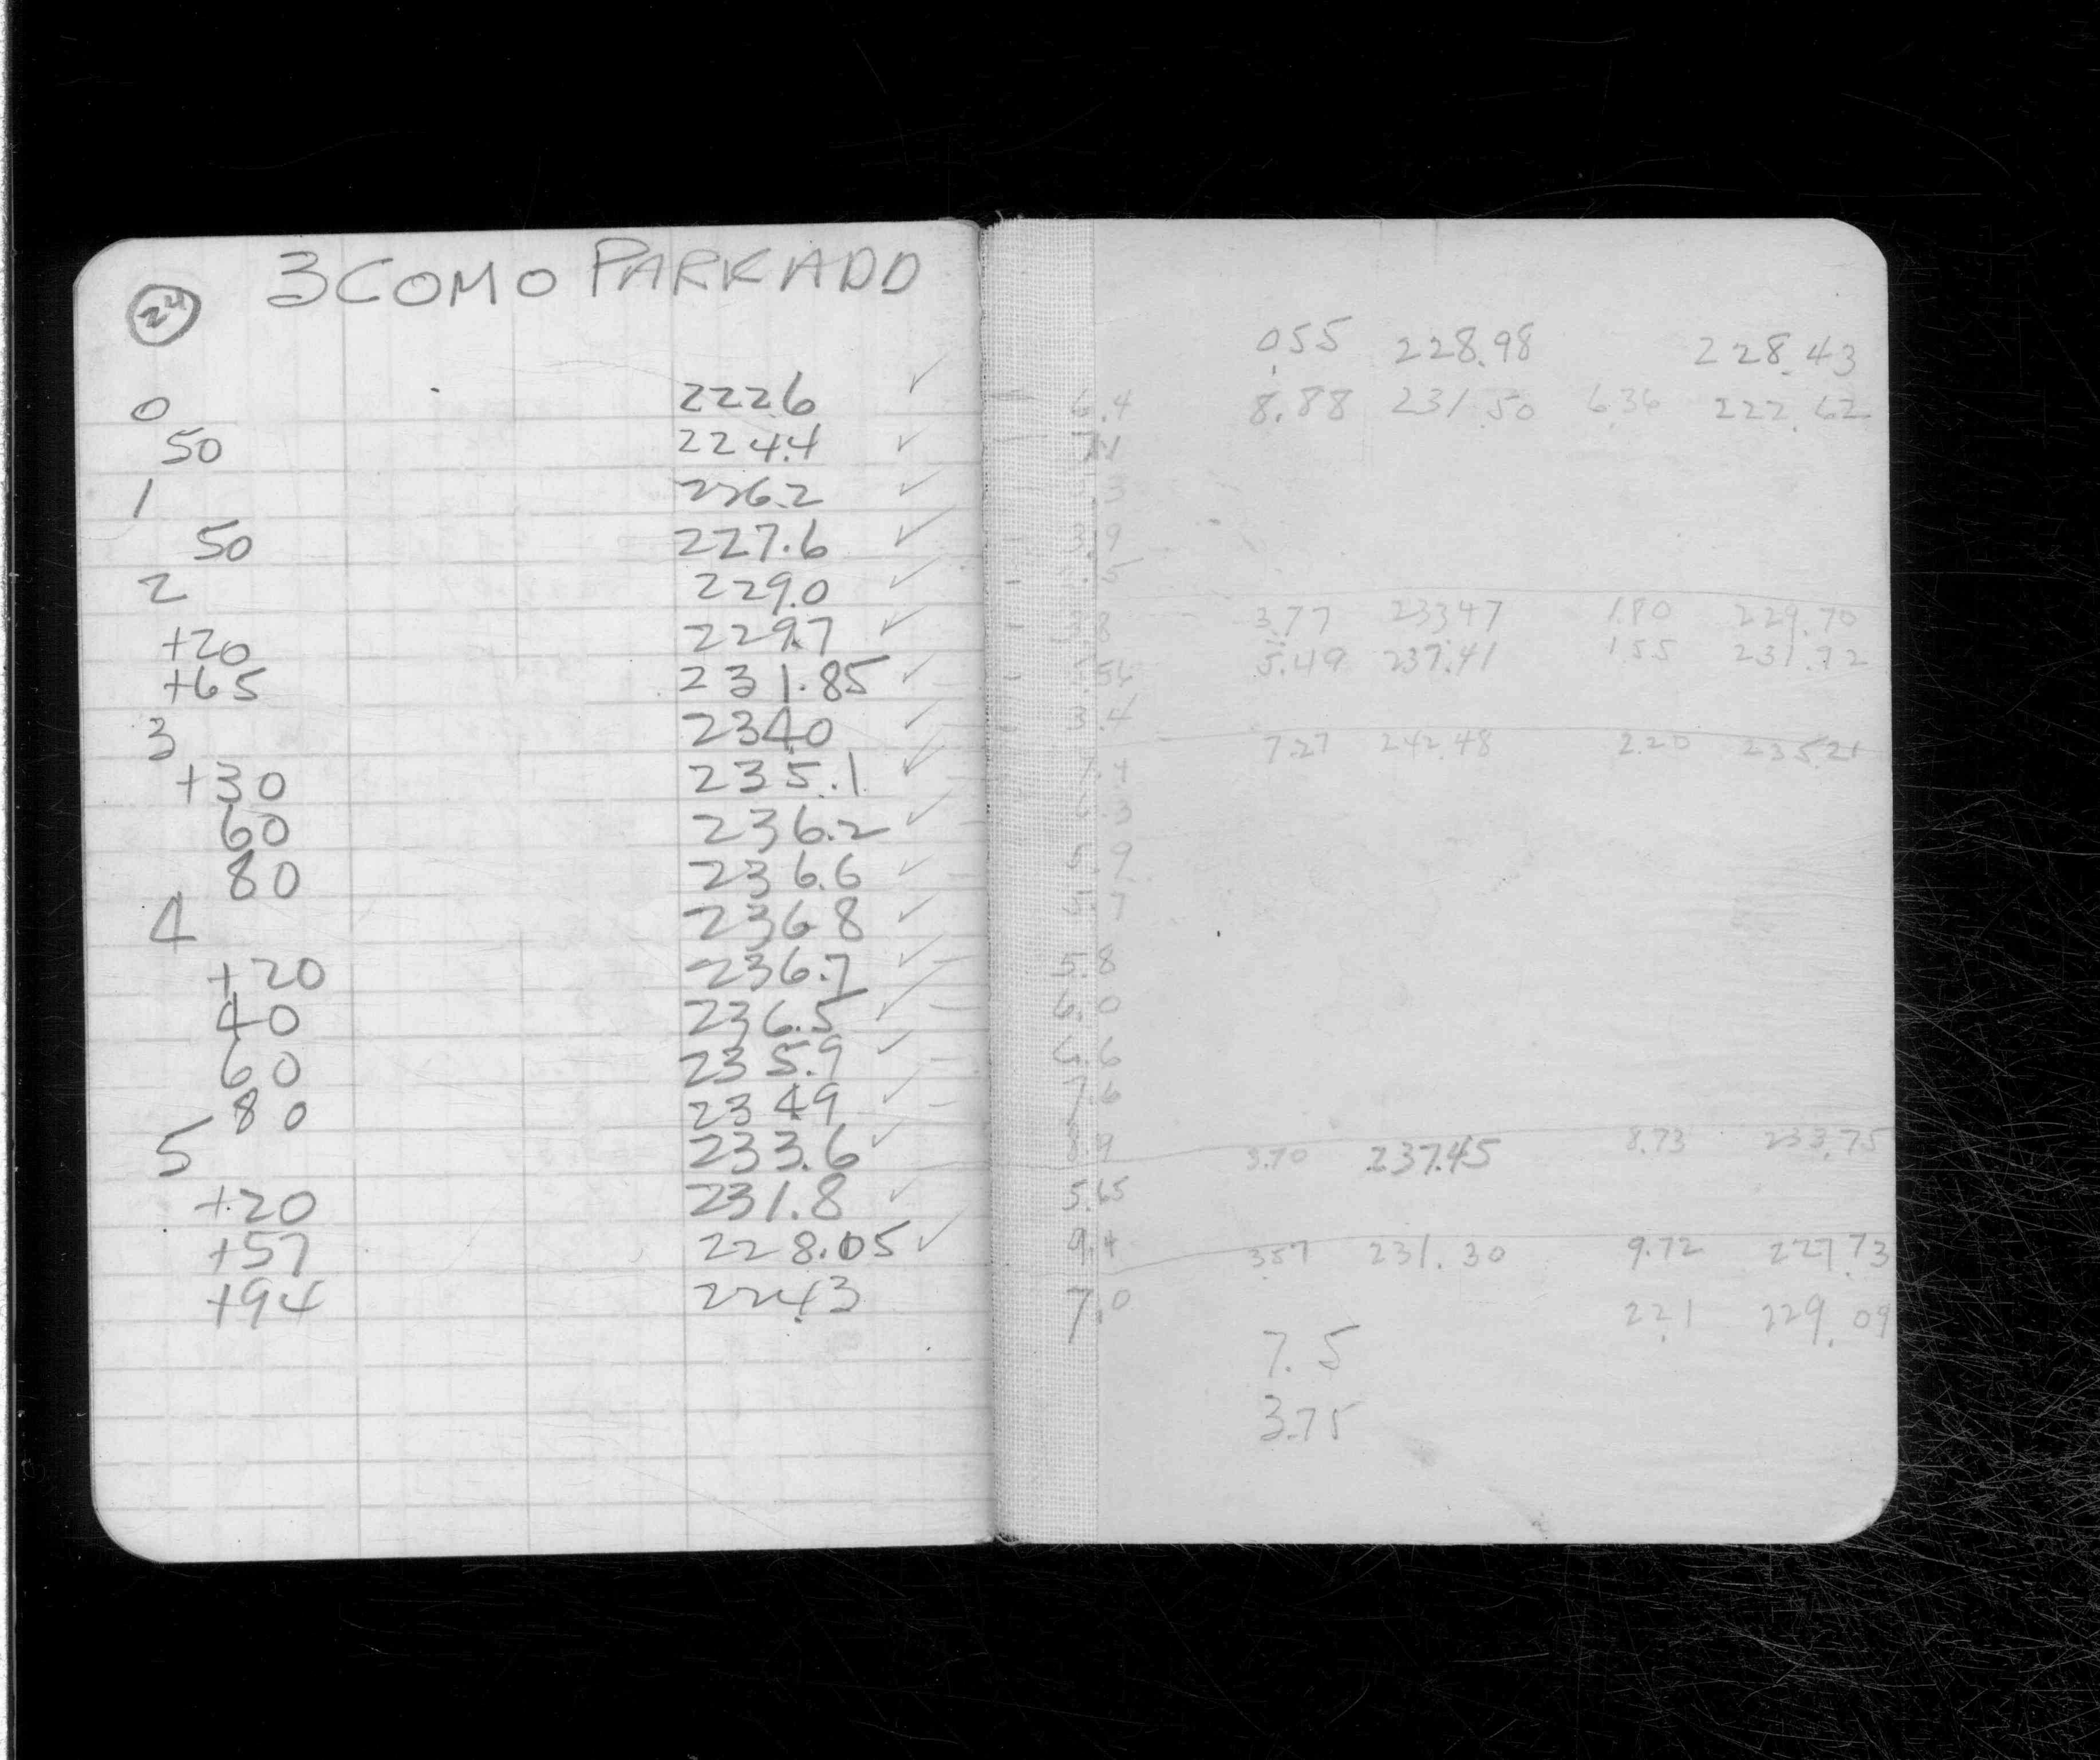 3 COMO PARK ADD
24
055 228.98 228.43
0 222.6 ✓ - 6.4 8.88 231.50 6.36 222.62
50 224.4 ✓
1 226.2 ✓
50 227.6 ✓ - 3.9
2 229.0 ✓ -
+20 229.7 ✓ - 3.8 3.77 233.47 1.80 229.70
+65 231.85 ✓ - 5.49 237.41 1.55 231.92
3 234.0 ✓ - 3.4
+30 235.1 ✓ 7.4 7.27 242.48 2.20 235.21
60 236.2 ✓ - 6.3
80 236.6 ✓ - 5.9
4 236.8 ✓ - 5.7
+20 236.7 ✓ - 5.8
40 236.5 ✓ - 6.0
60 235.9 ✓ - 6.6
80 234.9 ✓ - 7.6
5 233.6 ✓ 8.9 3.70 237.45 8.73 233.75
+20 231.8 ✓ 5.65
+57 228.05 ✓ 9.4 3.57 231.30 9.72 227.73
+94 224.3 7.0 2.21 229.09
7.5
3.75